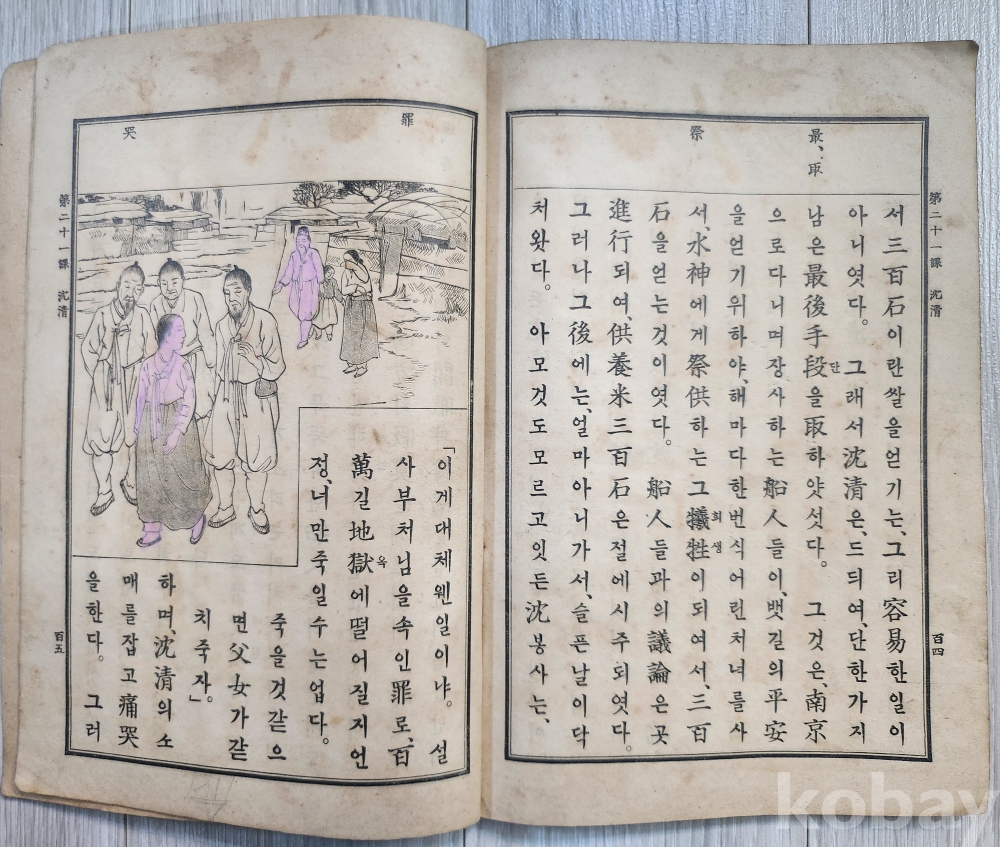 最、取
祭
第二十一課 沈清
百四
서三百石이란쌀을얻기는、그리容易한일이
아니엿다。 그래서沈清은、드듸여、단한가지
남은最後手段을取하얏섯다。 그것은、南京
단
으로다니며장사하는船人들이、뱃길의平安
을얻기위하야、해마다한번식어린처녀를사
서、水神에게祭供하는그犧牲이되여서、三百
희생
石을얻는것이엿다。 船人들과의議論은곳
進行되여、供養米三百石은절에시주되엿다。
그러나그後에는、얼마아니가서、슬픈날이닥
처왓다。 아모것도모르고잇든沈봉사는、
罪
哭
第二十一課 沈清
百五
「이게대체웬일이냐。 설
사부처님을속인罪로、百
萬길地獄에떨어질지언
옥
정、너만죽일수는업다。
죽을것같으
면父女가같
치죽자」
하며、沈清의소
매를잡고痛哭
을한다。 그러
kobay